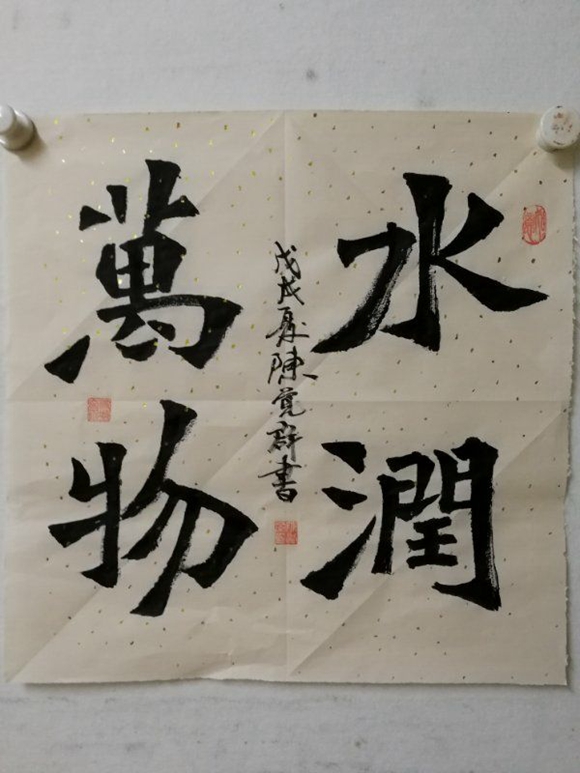 水潤
萬物
戊戌夏陳覚群書